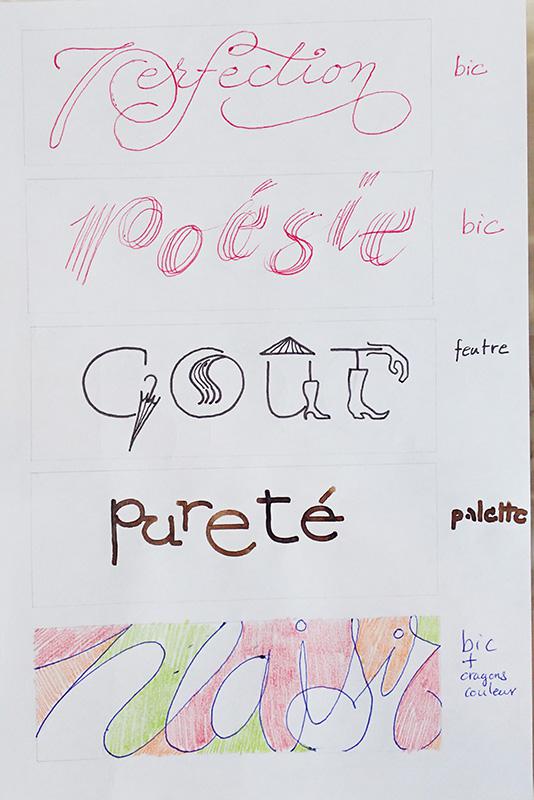 Perfection bic
Poésie bic
GOÛT feutre
pureté palette
Plaisir bic
+
crayons
couleur